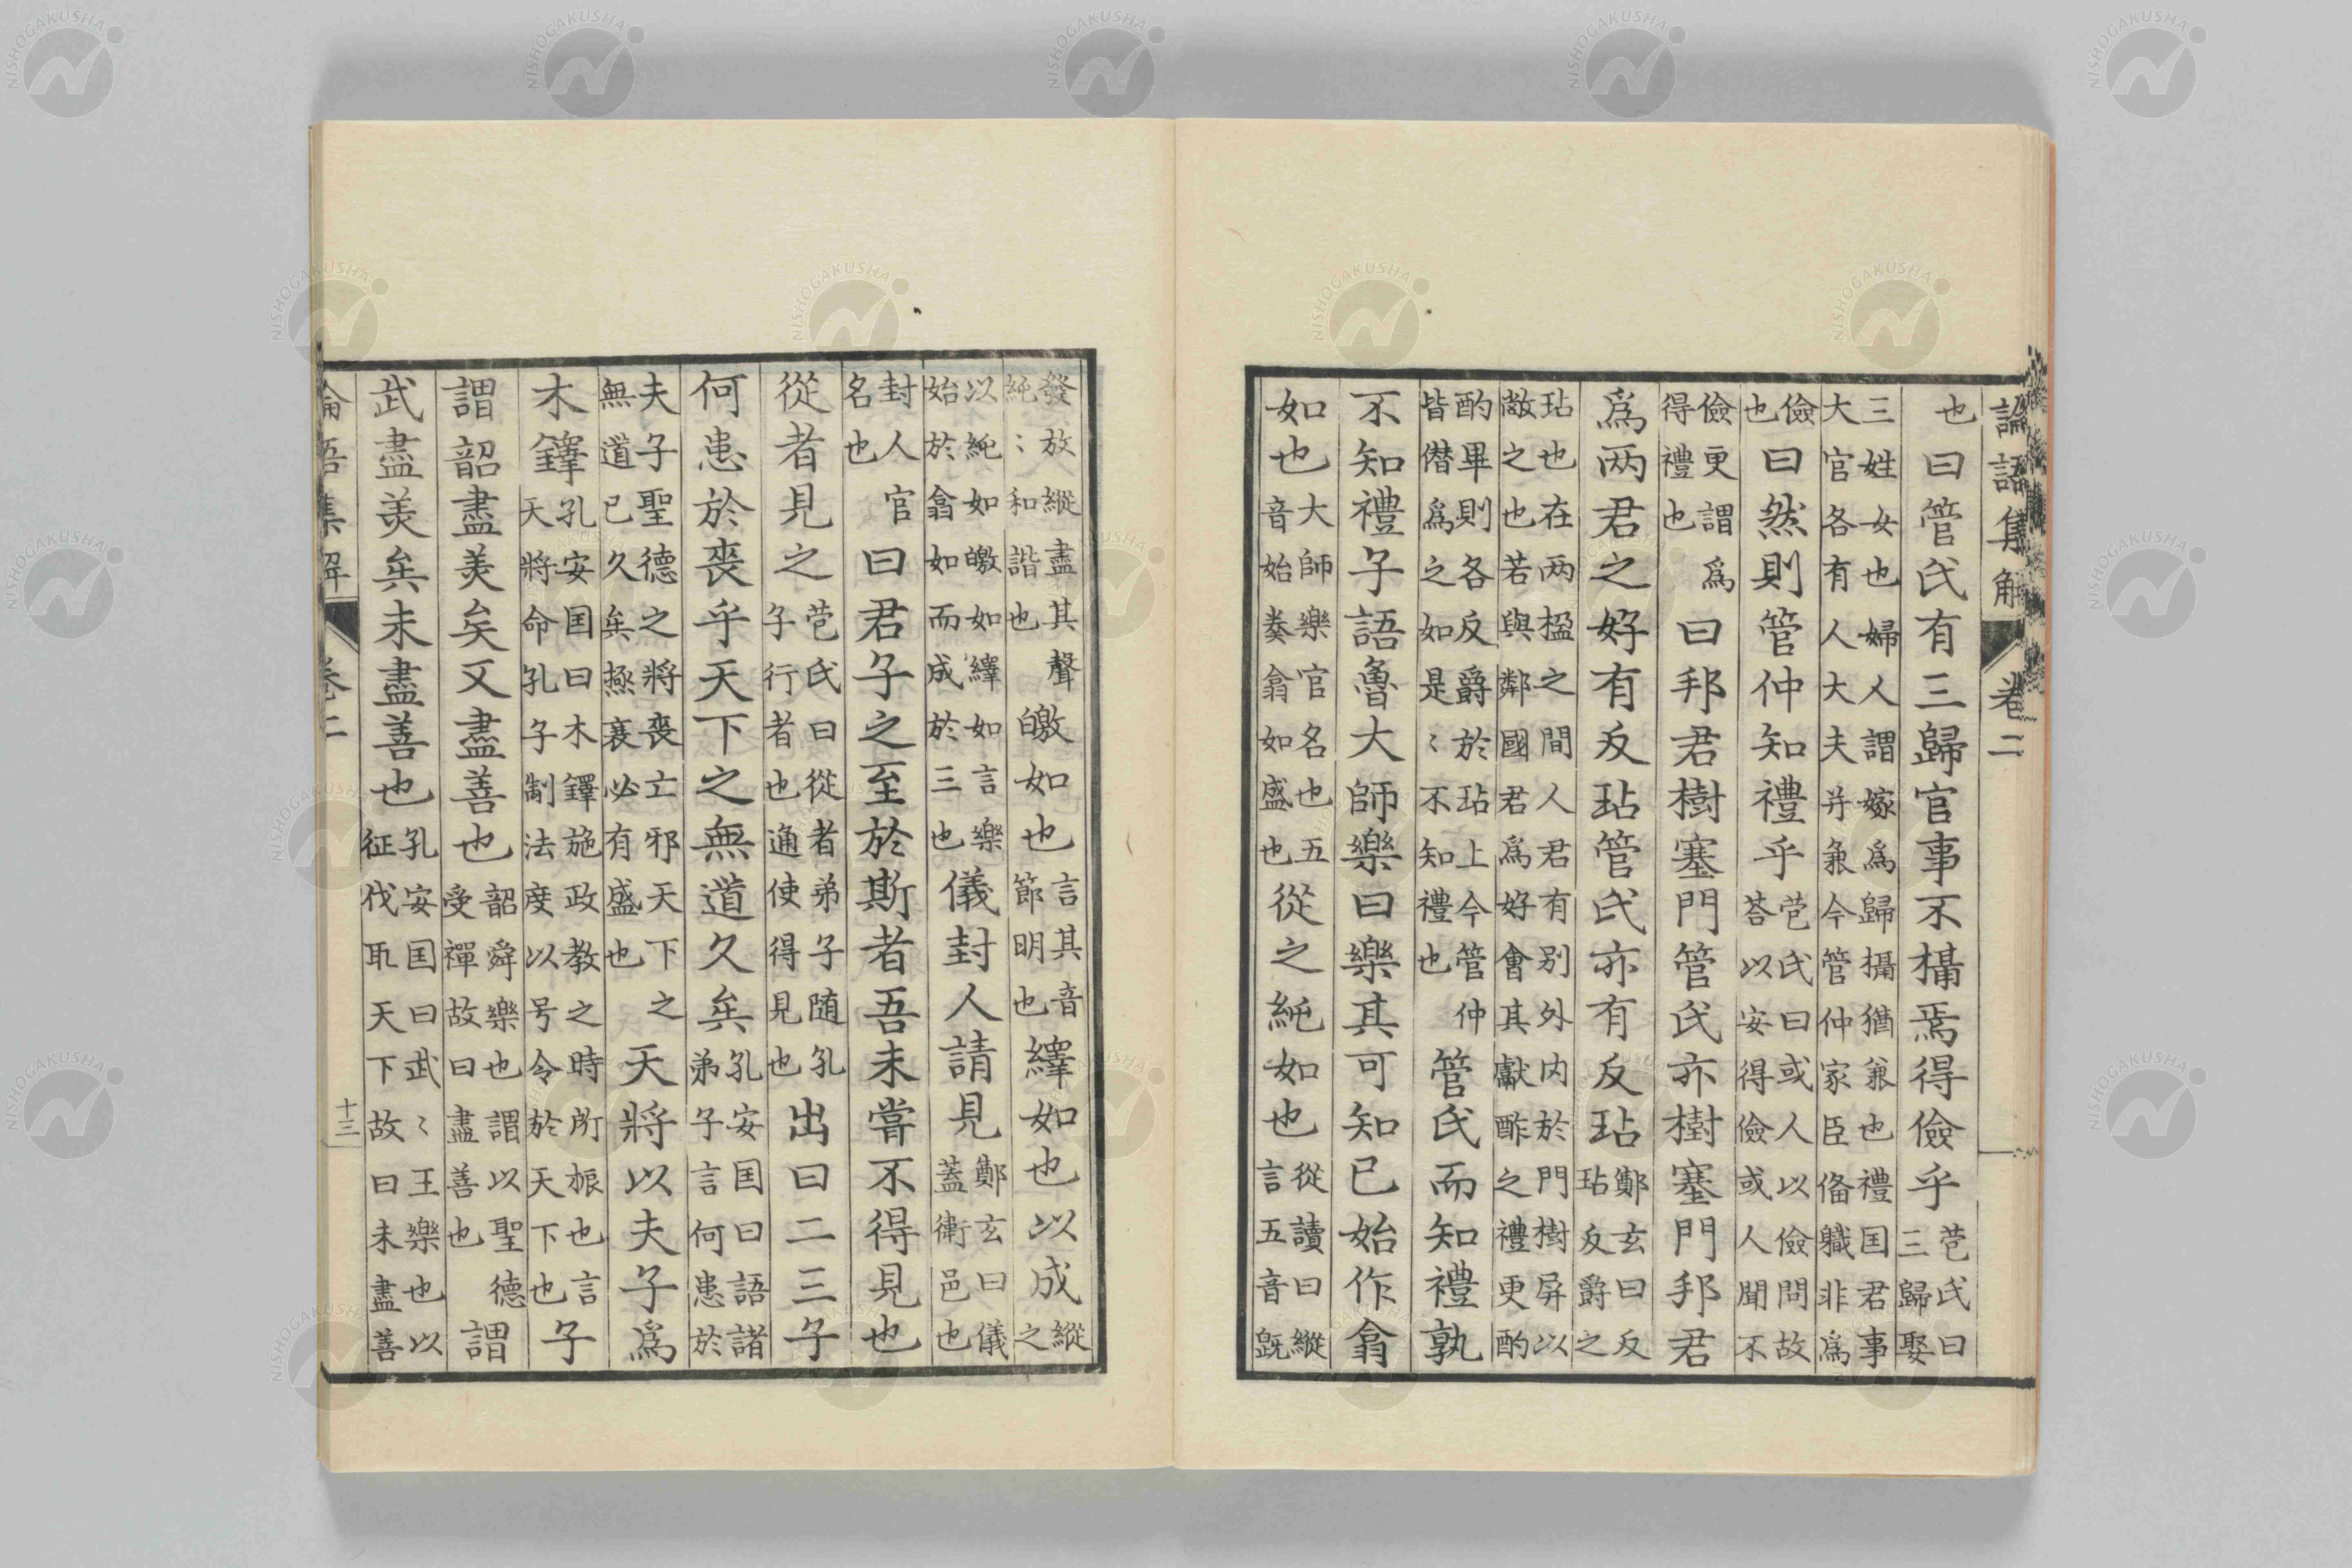 論語集解 卷二
也曰管氏有三歸官事不攝焉得儉乎苞氏曰三歸娶
三姓女也婦人謂嫁爲歸攝猶兼也禮囯君事大官各有人大夫并兼今管仲家臣俻職非爲
儉也曰然則管仲知禮乎苞氏曰或人以儉問故荅以安得儉或人聞不
儉更謂爲得禮也曰邦君樹塞門管氏亦樹塞門邦君
爲两君之好有反坫管氏亦有反坫鄭玄曰反坫反爵之
坫也在两楹之間人君有别外内於門樹屏以敝之也若與鄰國君爲好會其獻酢之禮更酌
酌畢則各反爵於坫上今管仲皆僣爲之如是〻不知禮也管氏而知禮孰
不知禮子語魯大師樂曰樂其可知已始作翕
如也大師樂官名也五音始奏翕如盛也從之純如也從讀曰縱言五音旣
發放縱盡其聲純〻和諧也皦如也言其音節明也繹如也以成縱之
以純如皦如繹如言樂始於翕如而成於三也儀封人請見鄭玄曰儀蓋衛邑也
封人官名也曰君子之至於斯者吾未嘗不得見也
從者見之苞氏曰從者弟子随孔子行者也通使得見也出曰二三子
何患於喪乎天下之無道久矣孔安囯曰語諸弟子言何患於
夫子聖德之將喪亡邪天下之無道已久矣極衰必有盛也天將以夫子爲
木鐸孔安囯曰木鐸施政教之時所振也言天將命孔子制法度以号令於天下也子
謂韶盡美矣又盡善也韶舜樂也謂以聖德受禪故曰盡善也謂
武盡美矣未盡善也孔安囯曰武〻王樂也以征伐取天下故曰未盡善
論語集解 卷二 十三
NISHOGAKUSHA